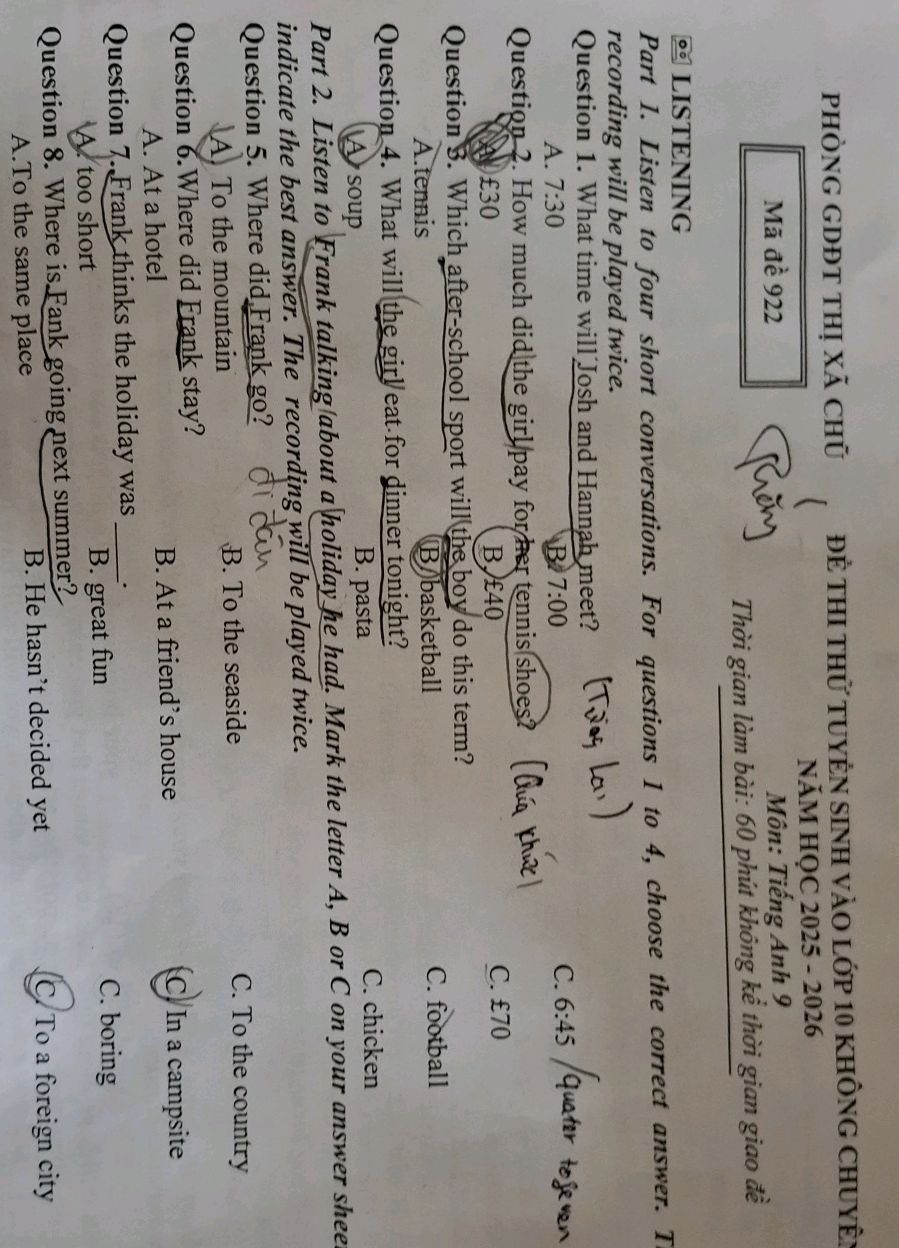 PHÒNG GDĐT THỊ XÃ CHŨ
ĐỀ THI THỬ TUYỂN SINH VÀO LỚP 10 KHÔNG CHUYÊN
NĂM HỌC 2025 - 2026
Môn: Tiếng Anh 9
Mã đề 922
Thời gian làm bài: 60 phút không kể thời gian giao đề
LISTENING
Part 1. Listen to four short conversations. For questions 1 to 4, choose the correct answer.
recording will be played twice.
Question 1. What time will Josh and Hannah meet? (Tương Lai)
A. 7:30 B. 7:00 C. 6:45 / quater to seven
Question 2. How much did the girl pay for her tennis shoes? (Quá khứ)
A. £30 B. £40 C. £70
Question 3. Which after-school sport will the boy do this term?
A. tennis B. basketball C. football
Question 4. What will the girl eat for dinner tonight?
A. soup B. pasta C. chicken
Part 2. Listen to Frank talking about a holiday he had. Mark the letter A, B or C on your answer sheet
indicate the best answer. The recording will be played twice.
Question 5. Where did Frank go? đi đâu
A. To the mountain B. To the seaside C. To the country
Question 6. Where did Frank stay?
A. At a hotel B. At a friend's house C. In a campsite
Question 7. Frank thinks the holiday was ______.
A. too short B. great fun C. boring
Question 8. Where is Fank going next summer?
A. To the same place B. He hasn't decided yet C. To a foreign city